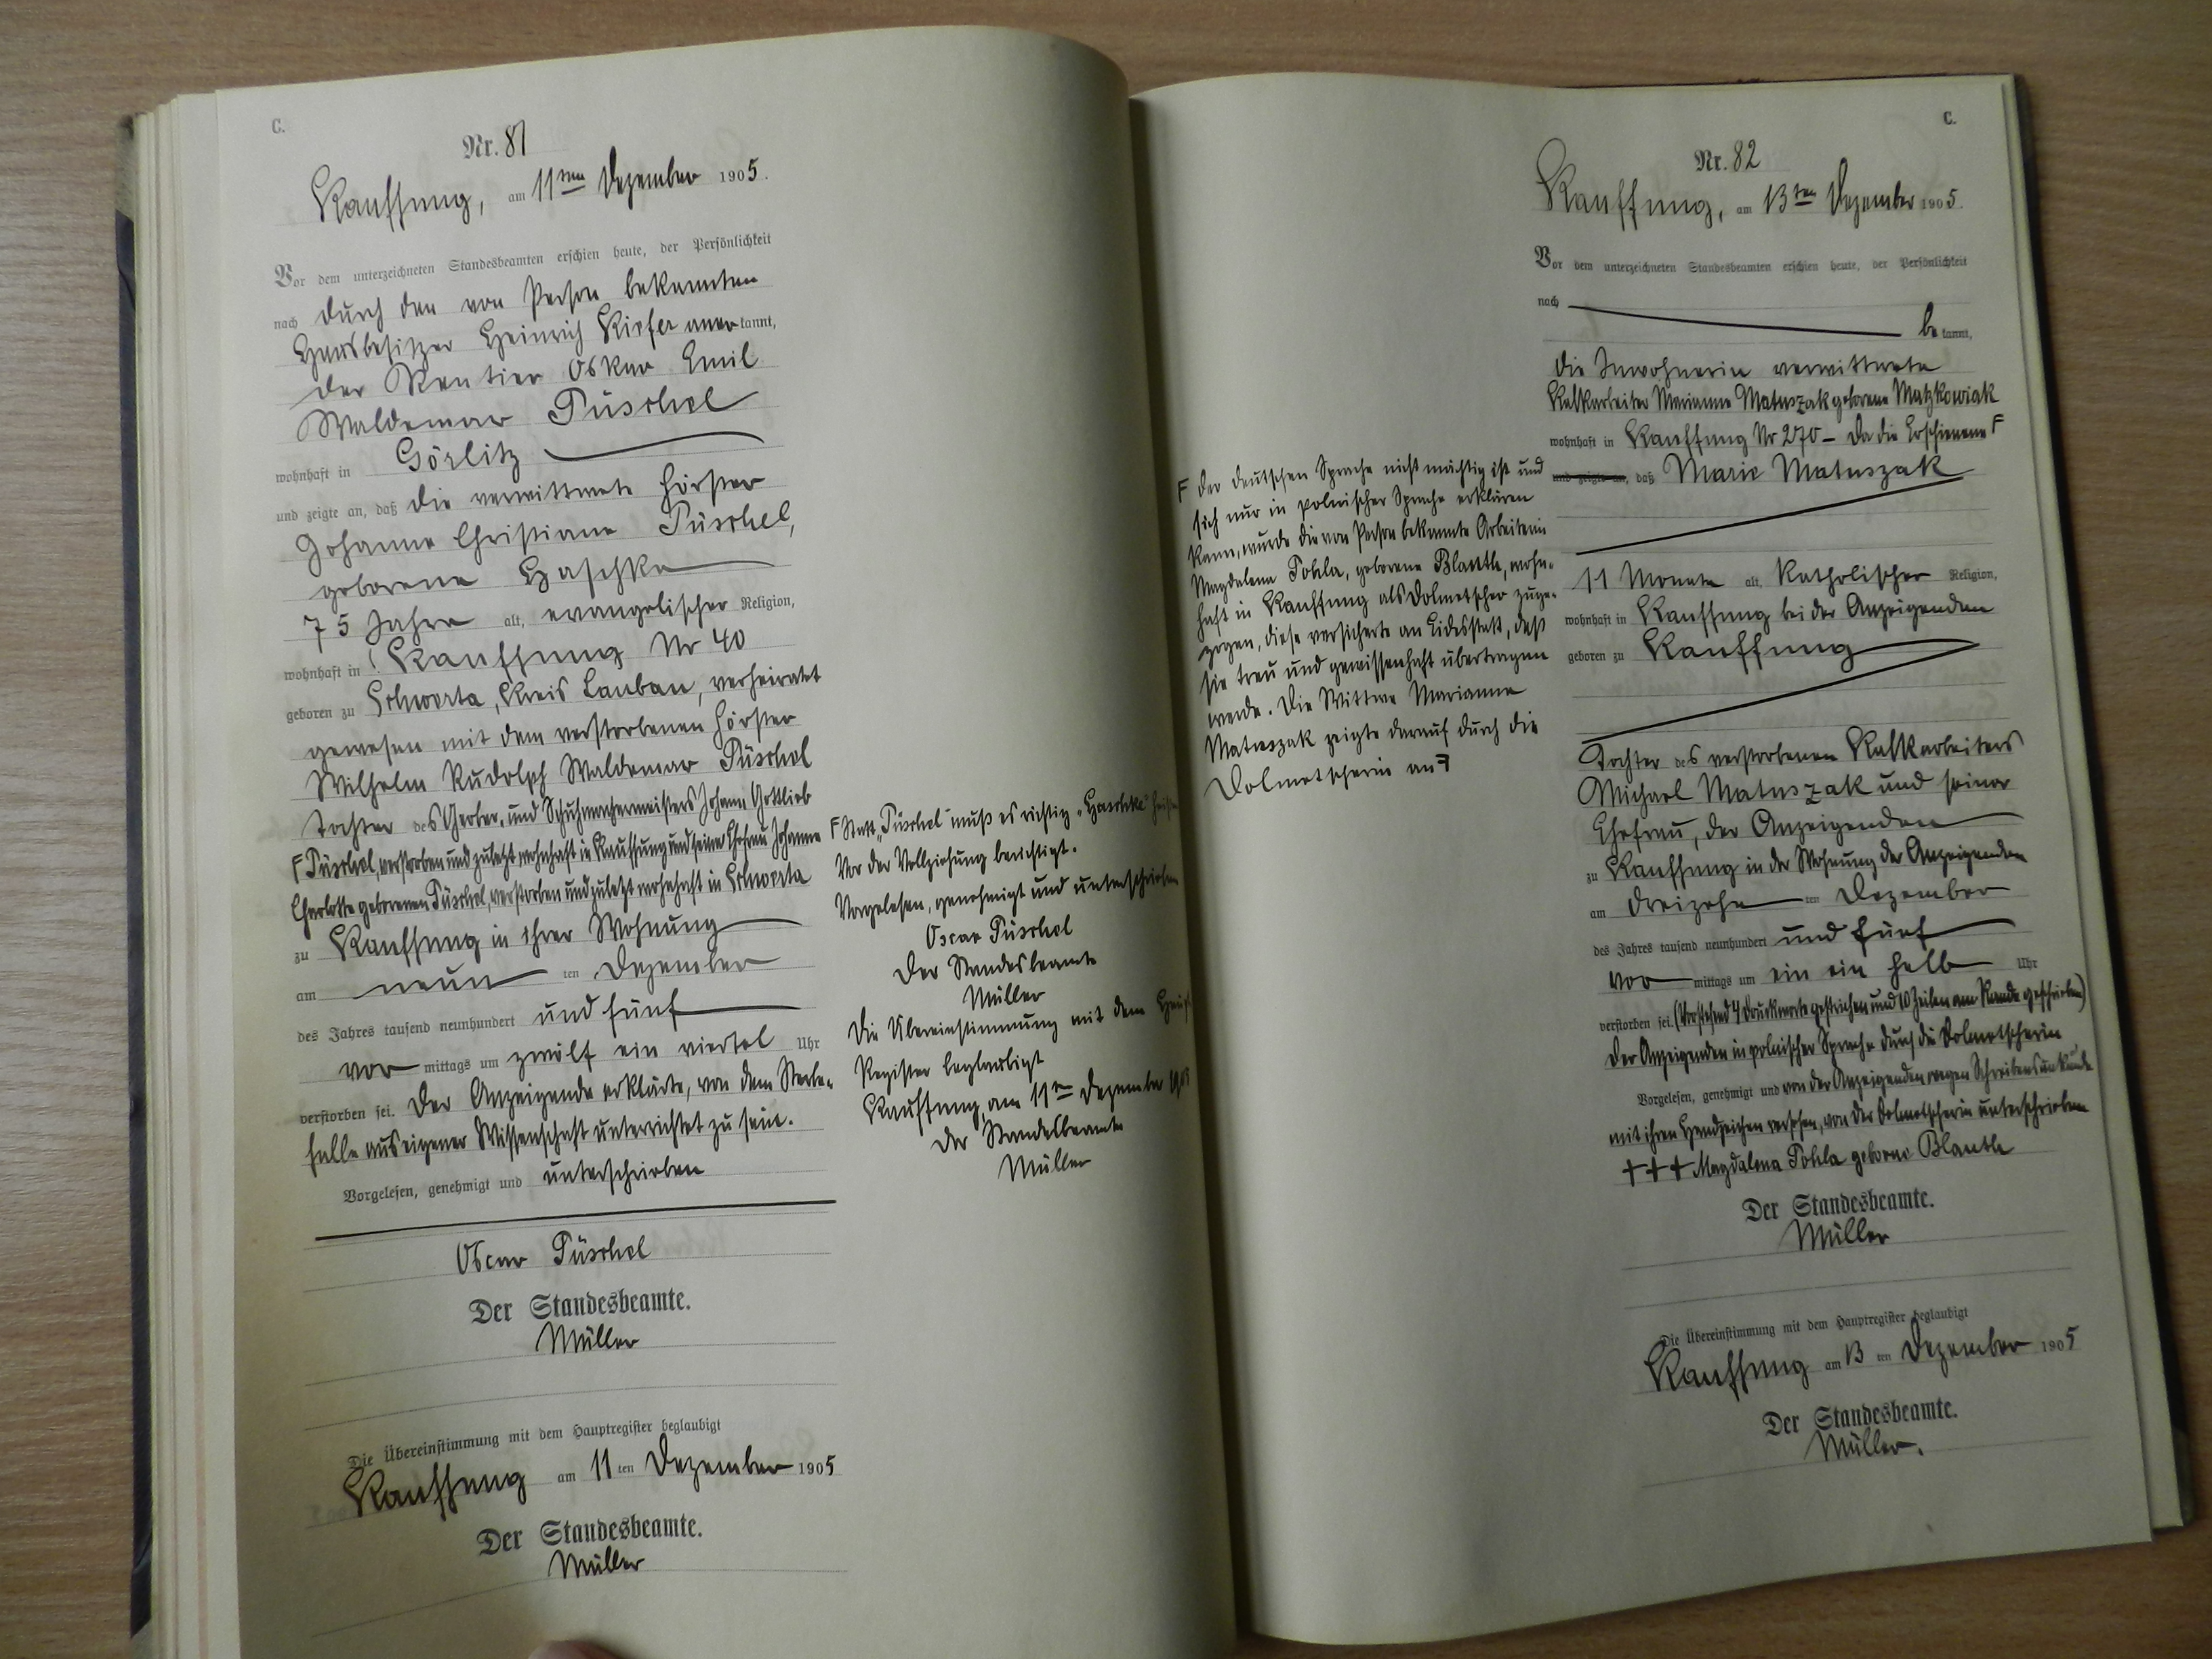 C.
Nr. 81
Kauffung, am 11ten Dezember 1905.
Vor dem unterzeichneten Standesbeamten erschien heute, der Persönlichkeit
nach durch den von Person bekannten
Hausbesitzer Heinrich Kiefer anerkannt,
der Rentier Oskar Emil
Waldemar Püschel
wohnhaft in Görlitz
und zeigte an, daß die verwittwete Förster
Johanne Christiane Püschel,
geborene Haschke
75 Jahre alt, evangelischer Religion,
wohnhaft in Kauffung Nr 40
geboren zu Schwerta, Kreis Lauban, verheiratet
gewesen mit dem verstorbenen Förster
Wilhelm Rudolph Waldemar Püschel
Tochter des Gerber- und Schuhmachermeisters Johann Gottlieb
F Püschel, verstorben und zuletzt wohnhaft in Kauffung und seine Ehefrau Johanne
Charlotte geborenen Püschel, verstorben und zuletzt wohnhaft in Schwerta
zu Kauffung in ihrer Wohnung
am neun ten Dezember
des Jahres tausend neunhundert und fünf
vor mittags um zwölf ein viertel Uhr
verstorben sei. Der Anzeigende erklärte, von dem Sterbe-
falle aus eigener Wissenschaft unterrichtet zu sein.
Vorgelesen, genehmigt und unterschrieben
Oscar Püschel
Der Standesbeamte.
Müller
Die Übereinstimmung mit dem Hauptregister beglaubigt
Kauffung am 11 ten Dezember 1905
Der Standesbeamte.
Müller
F Statt "Püschel" muß es richtig "Haschke"
Vor der Vollziehung berichtigt.
Vorgelesen, genehmigt und unterschrieben
Oscar Püschel
Der Standesbeamte
Müller
Die Übereinstimmung mit dem
Register beglaubigt
Kauffung, am 11ten Dezember
Der Standesbeamte
Müller
C.
Nr. 82
Kauffung, am 13ten Dezember 1905.
Vor dem unterzeichneten Standesbeamten erschien heute, der Persönlichkeit
nach
be kannt,
die Inwohnerin verwittwete
Kalkarbeiter Marianne Matuszak geborene Matzkowiak
wohnhaft in Kauffung Nr 270 – Da die Erschienene F
und zeigte an, daß Marie Matuszak
11 Monate alt, katholischer Religion,
wohnhaft in Kauffung bei der Anzeigenden
geboren zu Kauffung
Tochter des verstorbenen Kalkarbeiters
Michael Matuszak und seiner
Ehefrau, der Anzeigenden
zu Kauffung in der Wohnung der Anzeigenden
am dreizehn ten Dezember
des Jahres tausend neunhundert und fünf
vor mittags um ein ein halb Uhr
verstorben sei. (Vorstehend 4 Druckworte gestrichen und 10 Zeilen am Rande geschrieben)
Der Anzeigenden in polnischer Sprache durch die Dolmetscherin
Vorgelesen, genehmigt und von der Anzeigenden wegen Schreibensunkunde
mit ihren Handzeichen versehen, von der Dolmetscherin unterschrieben
+++ Magdalena Pohla geborne Blauth
Der Standesbeamte.
Müller
Die Übereinstimmung mit dem Hauptregister beglaubigt
Kauffung am 13 ten Dezember 1905
Der Standesbeamte.
Müller.
F der deutschen Sprache nicht mächtig ist und
sich nur in polnischer Sprache erklären
kann, wurde die von Person bekannte Arbeiterin
Magdalena Pohla, geborene Blauth, wohn-
haft in Kauffung als Dolmetscher zuge-
zogen, diese versicherte an Eidesstatt, daß
sie treu und gewissenhaft übertragen
werde. Die Wittwe Marianne
Matuszak zeigte darauf durch die
Dolmetscherin an